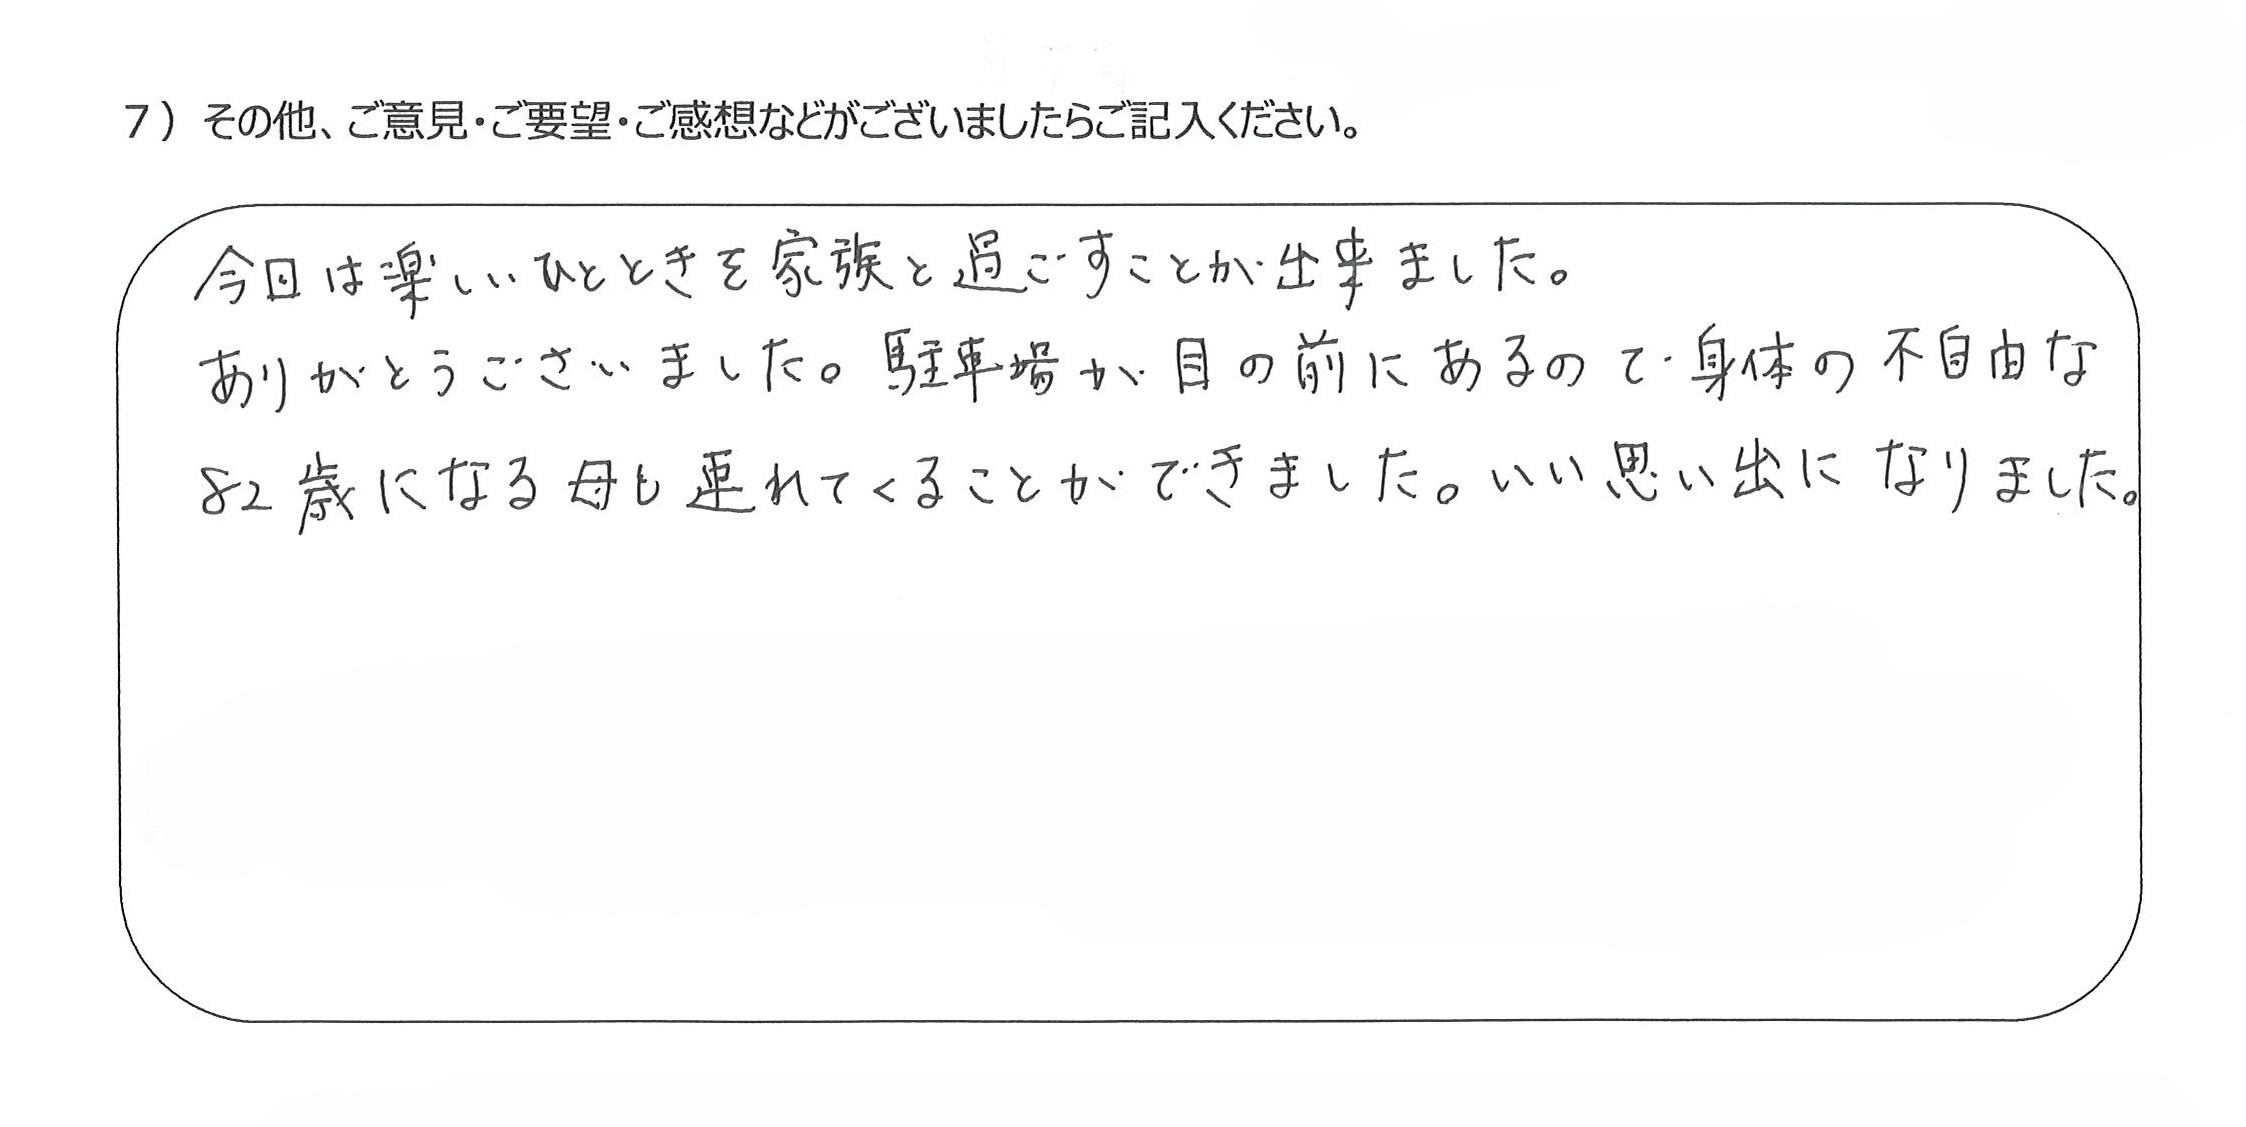 7）その他、ご意見・ご要望・ご感想などがございましたらご記入ください。
今日は楽しいひとときを家族と過ごすことが出来ました。
ありがとうございました。駐車場が目の前にあるので身体の不自由な
82歳になる母も連れてくることができました。いい思い出になりました。